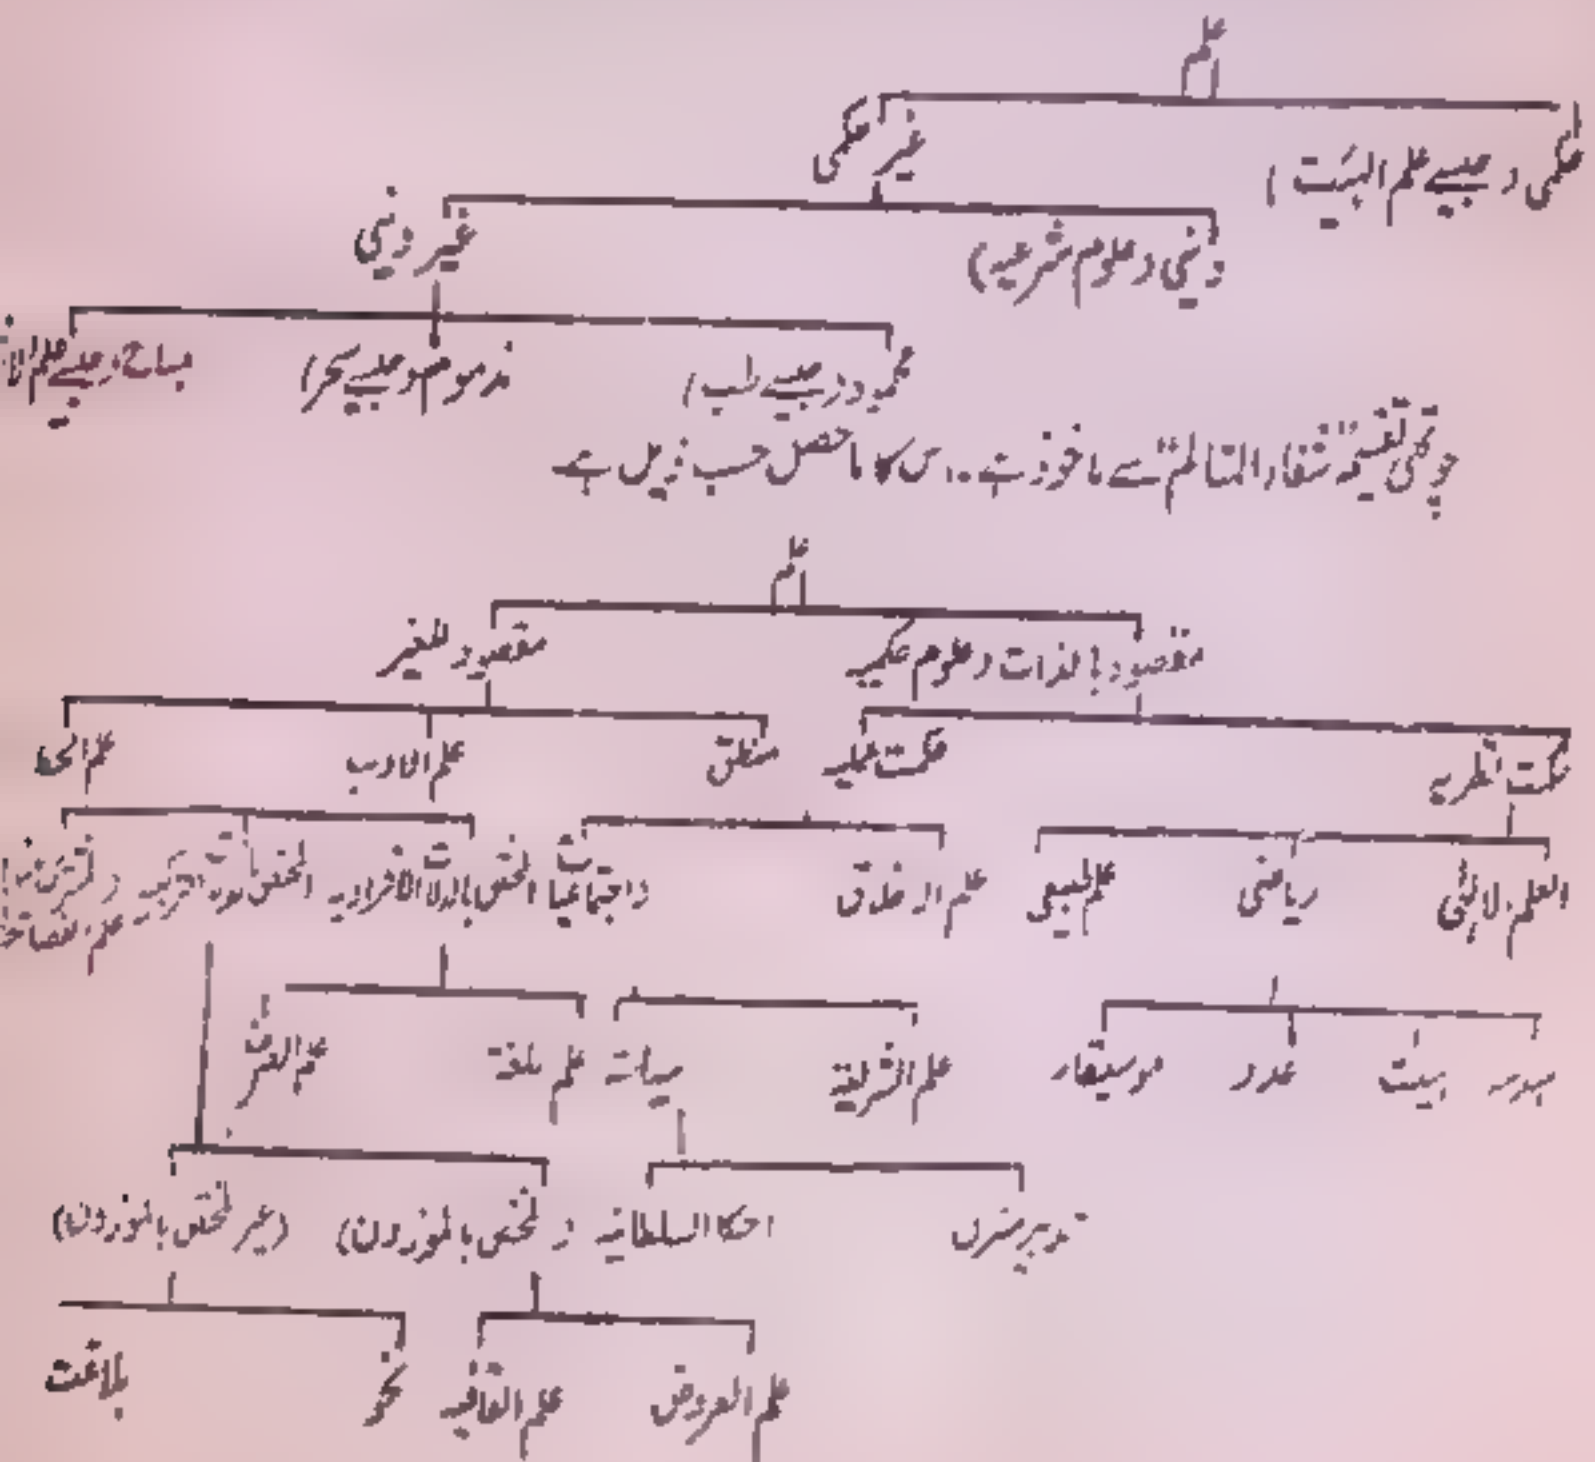 علم
حکمی (جیسے علم الہیئت) غیر حکمی
دینی (علوم شرعیہ) غیر دینی
محمود (جیسے طب) مذموم (جیسے سحر) مباح (جیسے علم
چوتھی تقسیم شفاء المتألم سے ماخوذ ہے۔ اس کا ماحصل حسب ذیل ہے
علم
مقصود بالذات (علوم حکمیہ مقصود للغیر
حکمت نظریہ حکمت عملیہ منطق علم الادب علم
العلم الالٰہی ریاضی علم طبیعی علم الاخلاق (اجتماعیات) المختص بالدلالات الافرادیہ المختص
ہندسہ ہیئت عدد موسیقار علم الشریعۃ سیاستہ علم لغۃ علم الصرف
تدبیر منزل احکام السلطانیہ (مختص بالموزون) (غیر مختص بالموزون)
علم العروض علم القافیہ نحو بلاغت